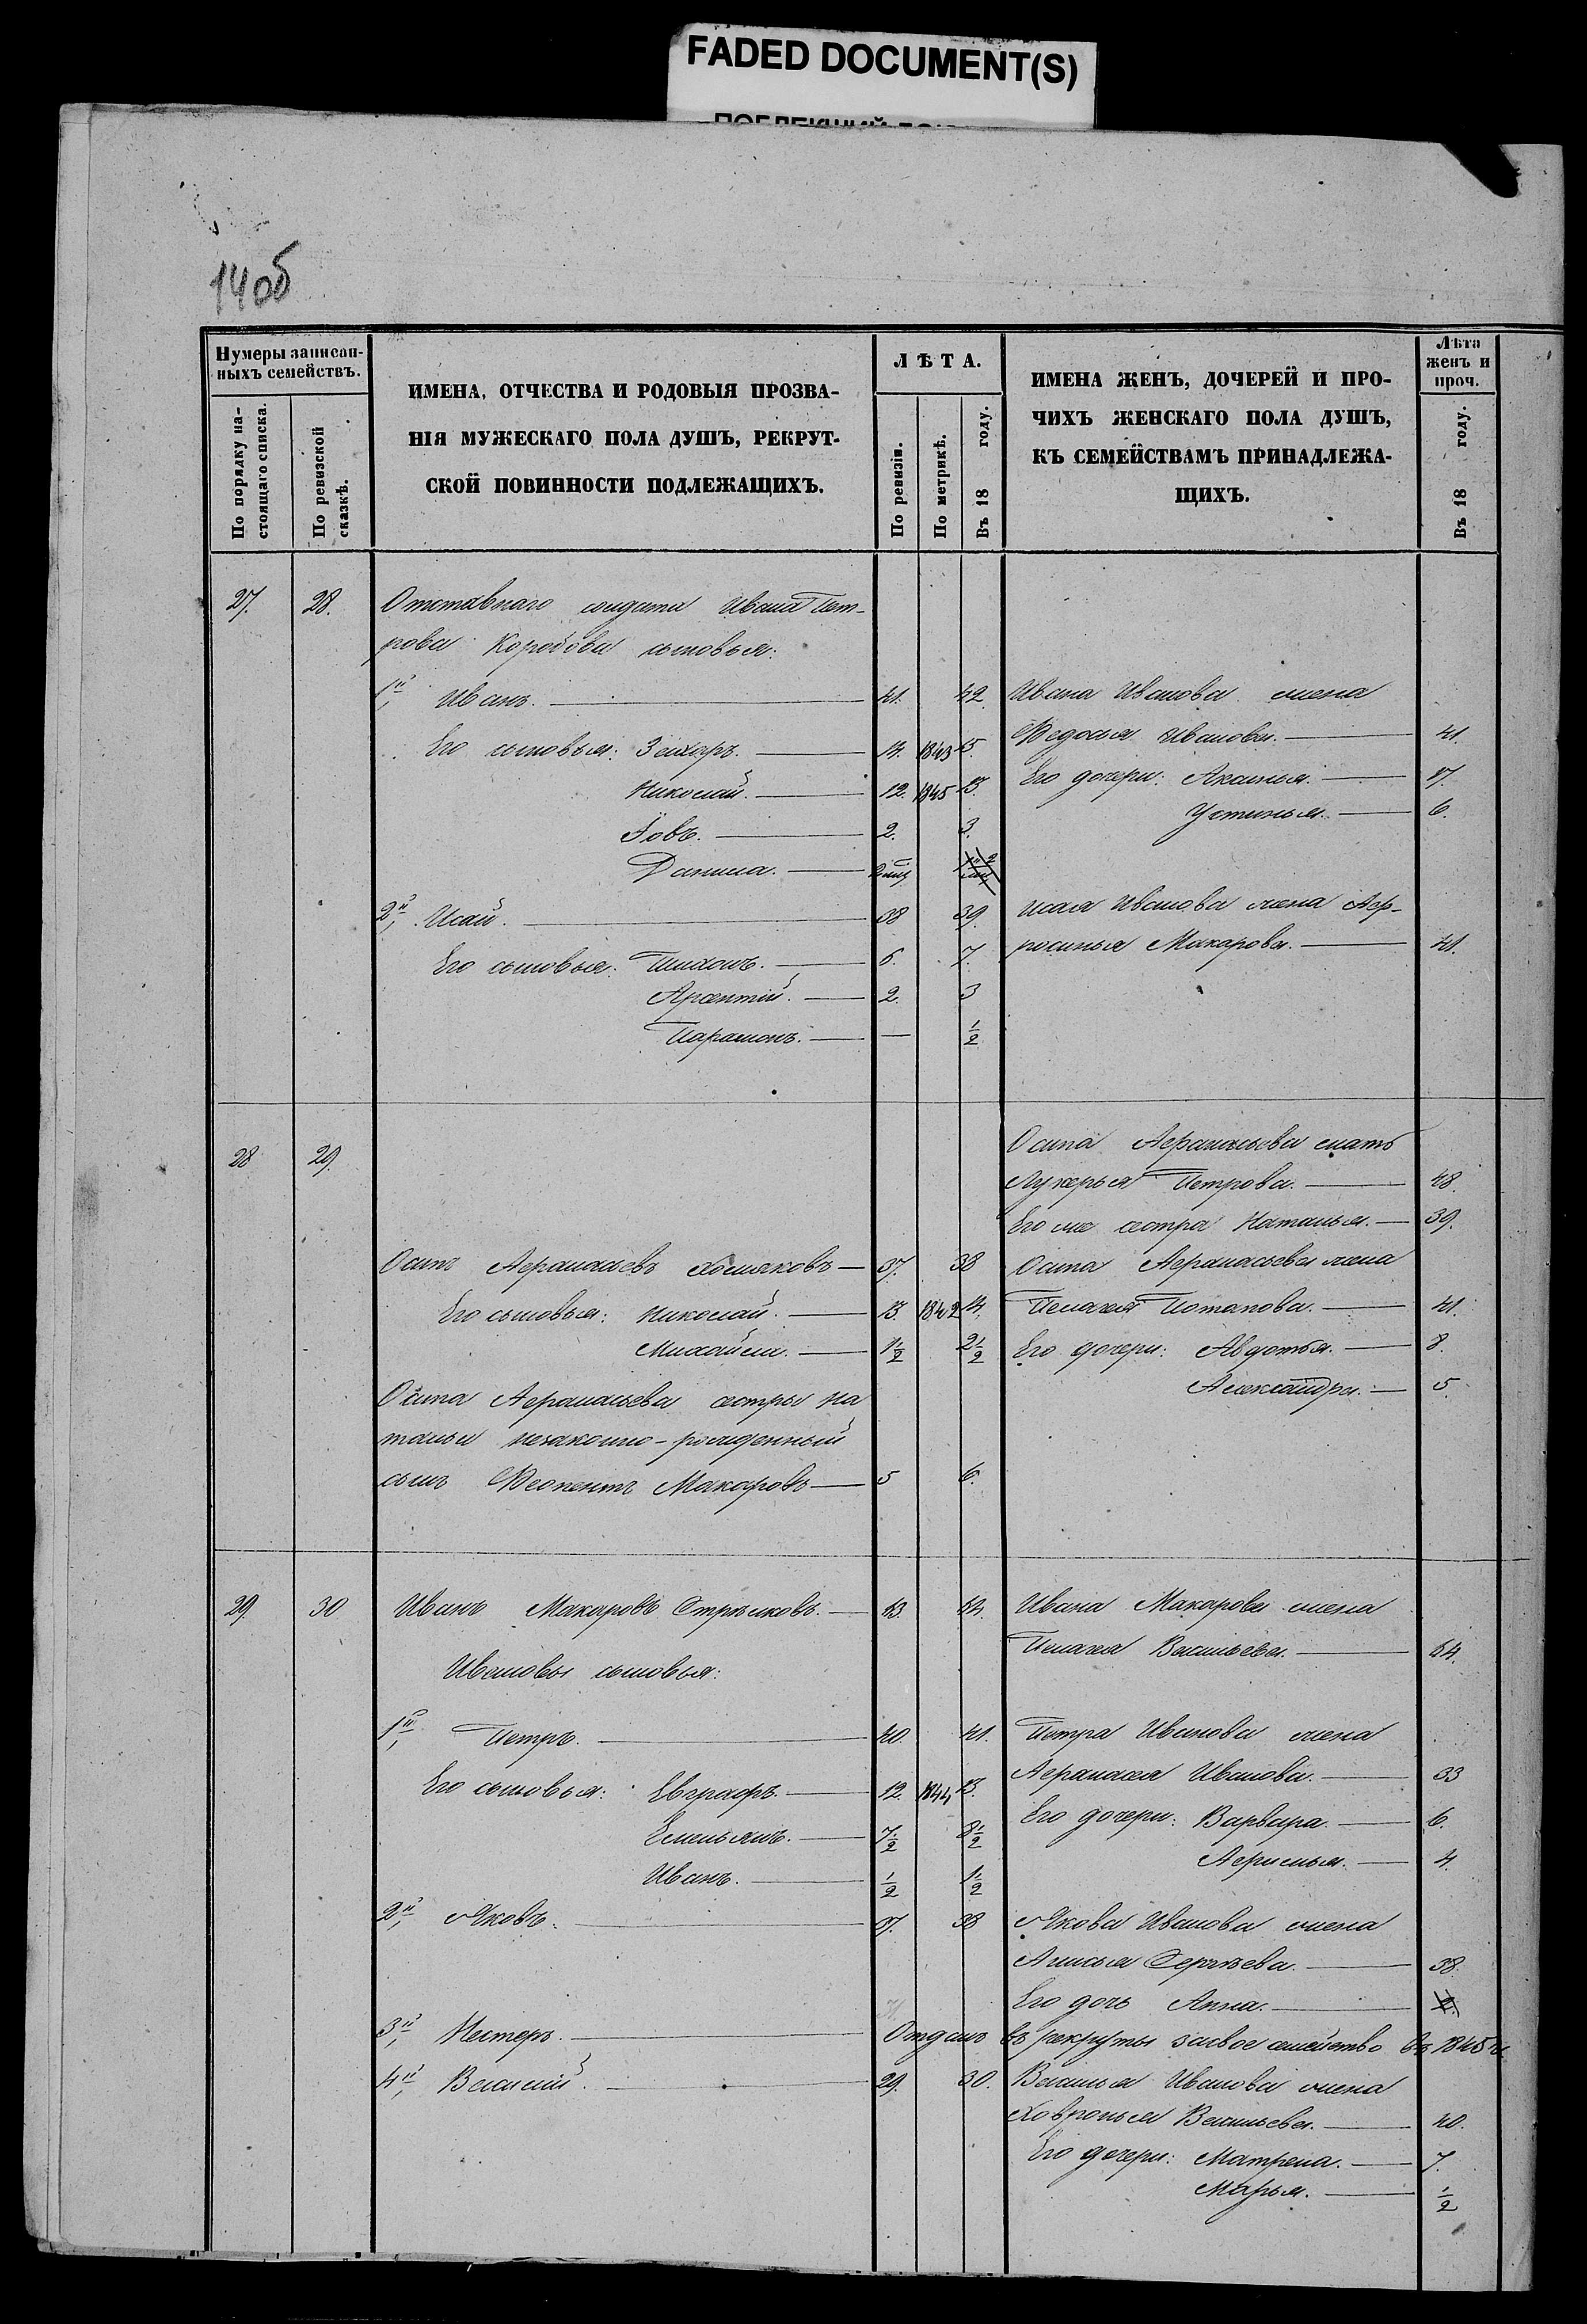 FADED DOCUMENT(S)
140б
Нумеры записан-
ныхъ семействъ.
По порядку на-
стоящаго списка.
По ревизской
сказкѣ.
ИМЕНА, ОТЧЕСТВА И РОДОВЫЯ ПРОЗВА-
НІЯ МУЖЕСКАГО ПОЛА ДУШЪ, РЕКРУТ-
СКОЙ ПОВИННОСТИ ПОДЛЕЖАЩИХЪ.
ЛѢТА.
По ревизіи.
По метрикѣ.
Въ 18 году.
ИМЕНА ЖЕНЪ, ДОЧЕРЕЙ И ПРО-
ЧИХЪ ЖЕНСКАГО ПОЛА ДУШЪ,
КЪ СЕМЕЙСТВАМЪ ПРИНАДЛЕЖА-
ЩИХЪ.
Лѣта
женъ и
проч.
Въ 18 году.
27. 28. Отставнаго солдата Ивана Пет-
рова Коробова сыновья:
1й, Иванъ. 41. 42. Ивана Иванова жена
Федосья Иванова. 41.
Его сыновья: Захаръ. 14. 1843 15.
Его дочери: Аксинья. 17.
Николай. 12. 1845 13.
Устинья. 6.
Іовъ. 2. 3.
Данила.
2й, Исай. 38 39. Исая Иванова жена Аф-
росинья Макарова. 41.
Его сыновья: Тихонъ. 6. 7.
Арсентій. 2. 3
Парамонъ. — 1/2
28 29. Осипа Афанасьева мать
Лукерья Петрова. 48.
Его же сестра Наталья. 39.
Осипъ Афанасьевъ Хомяковъ 37. 38 Осипа Афанасьева жена
Его сыновья: Николай. 13. 1842 14. Пелагея Потапова. 41.
Михайла. 1 1/2 2 1/2 Его дочери: Авдотья. 8.
Александра. 5.
Осипа Афанасьева сестры На
тальи незаконно-рожденный
сынъ Феопентъ Макаровъ 5 6.
29. 30 Иванъ Макаровъ Стрѣлковъ. 63. 64. Ивана Макарова жена
Пелагея Васильева. 64.
Ивановы сыновья:
1й, Петръ. 40. 41. Петра Иванова жена
Афанасея Иванова. 33
Его сыновья: Евграфъ. 12. 1844 13.
Его дочери: Варвара. 6.
Емельянъ. 7 1/2 8 1/2
Афимья. 4.
Иванъ. 1/2 1 1/2
2й, Яковъ. 37. 38 Якова Иванова жена
Анисья Сергѣева. 38.
Его дочь Анна.
3й, Нестеръ. Отданъ въ рекруты за свое семейство въ 1845 г.
4й, Василій. 29. 30. Василья Иванова жена
Ховронья Васильева. 40.
Его дочери: Матрена. 7.
Марья. 1/2